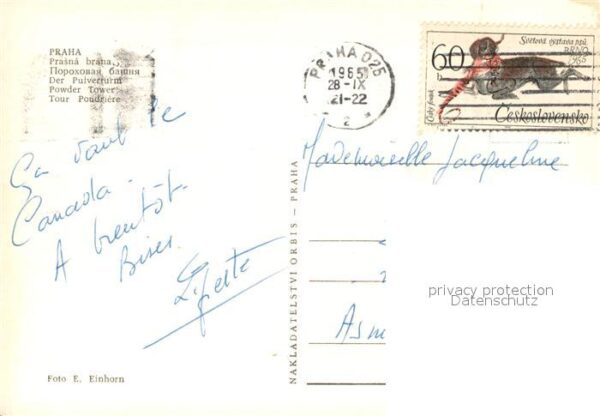 PRAHA
Prašná brána
Пороховая башня
Der Pulverturm
Powder Tower
Tour Poudrière
PRAHA 025
1965
28-IX
21-22
2
60
Světová výstava psů
BRNO
1965
Český fousek
Československo
Ça vaut le
Canada.
A bientôt.
Bises
Mademoiselle Jacqueline
NAKLADATELSTVÍ ORBIS — PRAHA
privacy protection
Datenschutz
Asn
Foto E. Einhorn